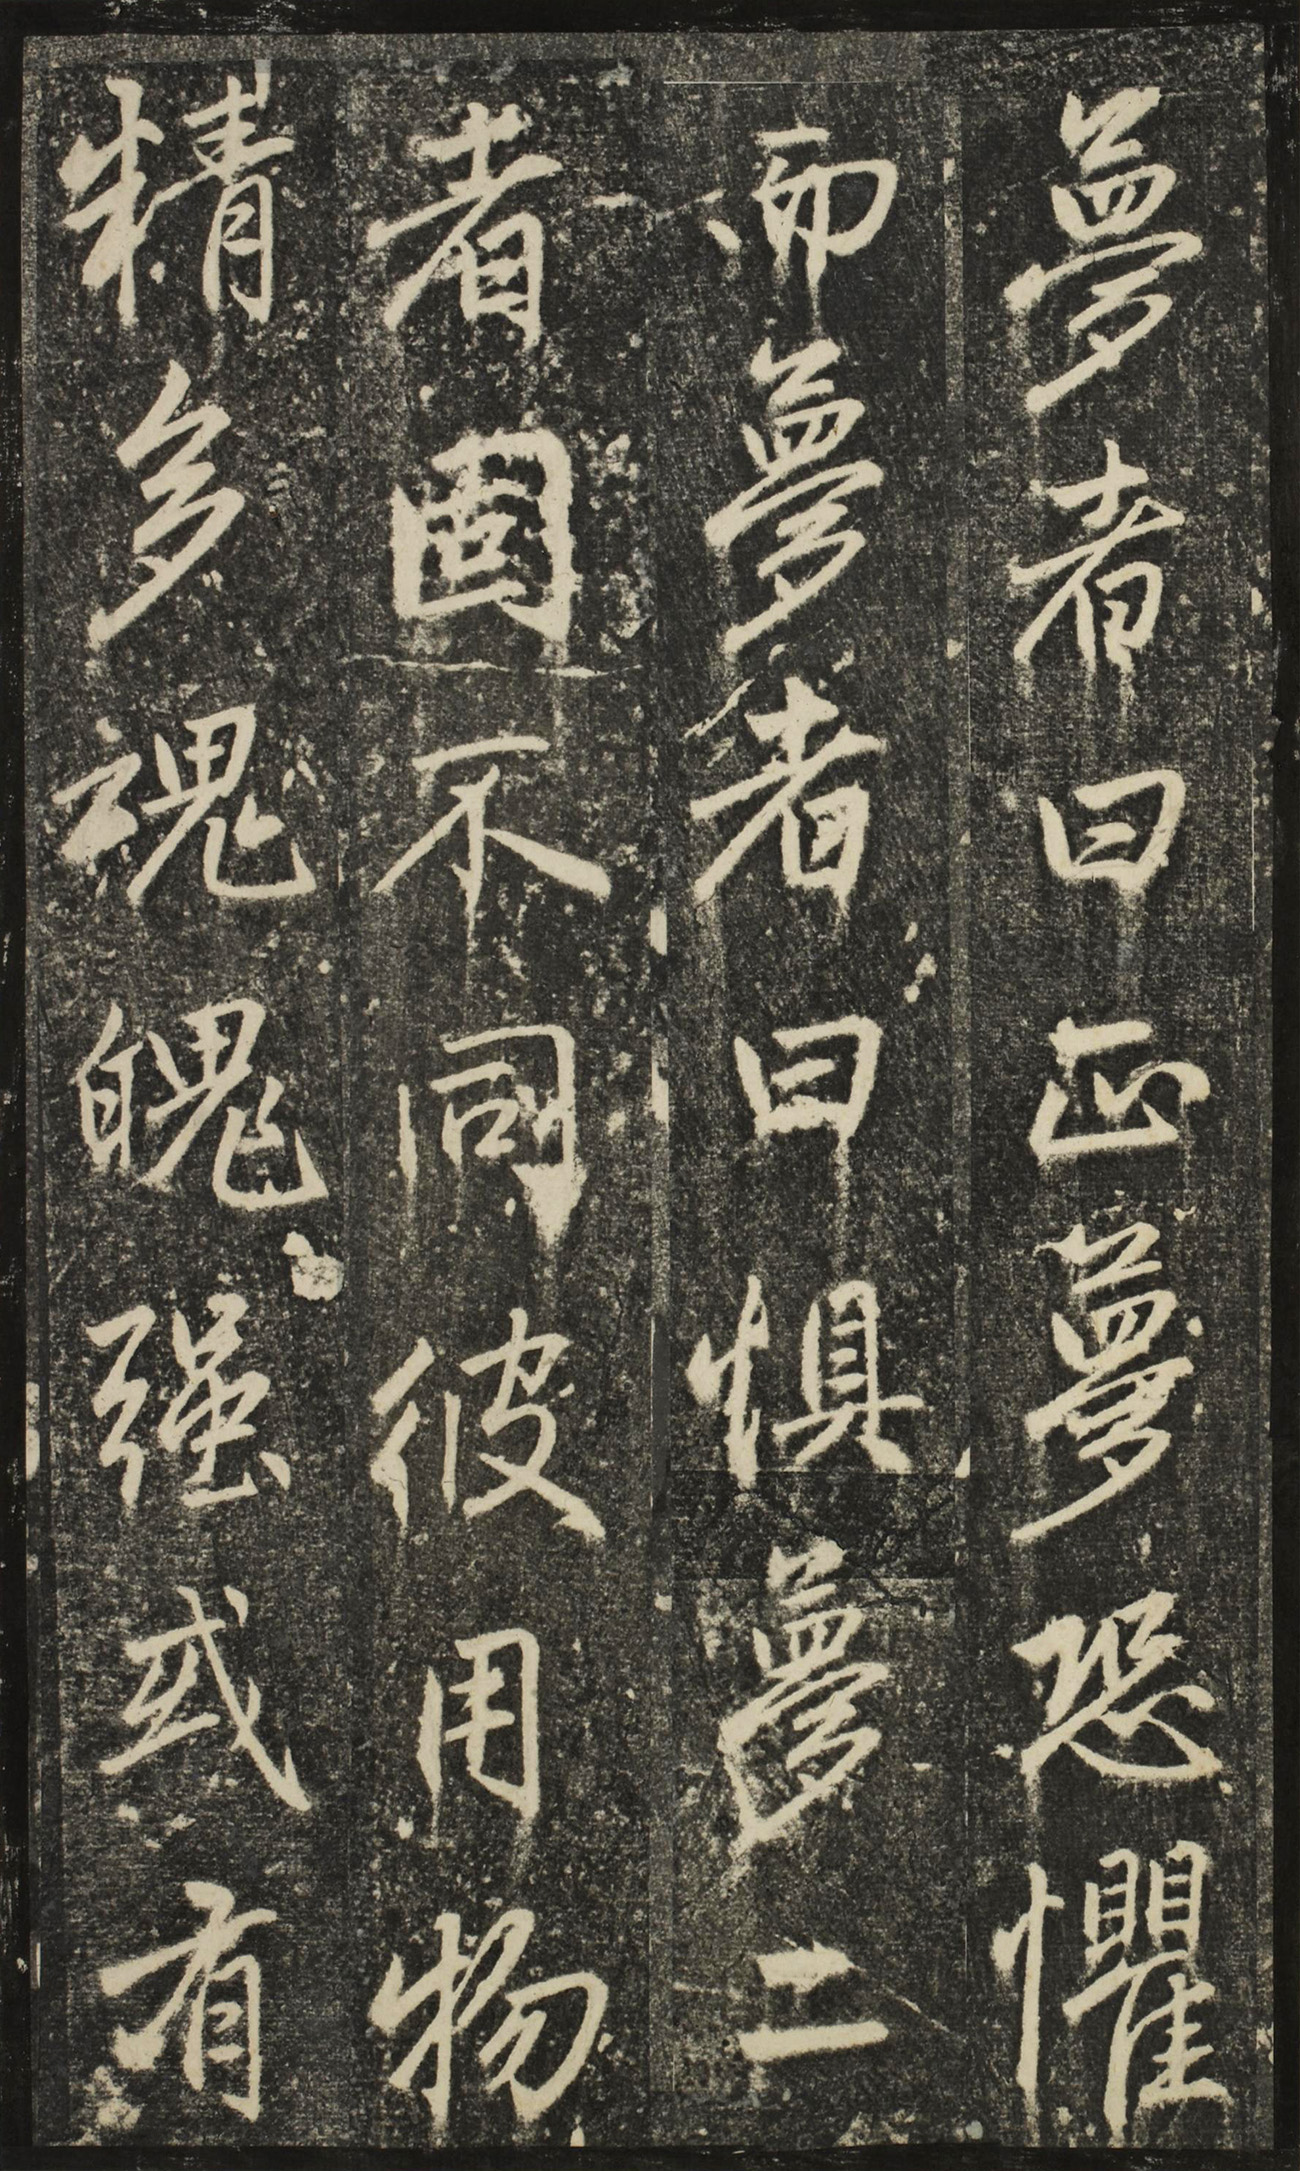 夢者曰正夢恐懼
而夢者曰惧夢二
者固不同彼用物
精多魂魄强或有